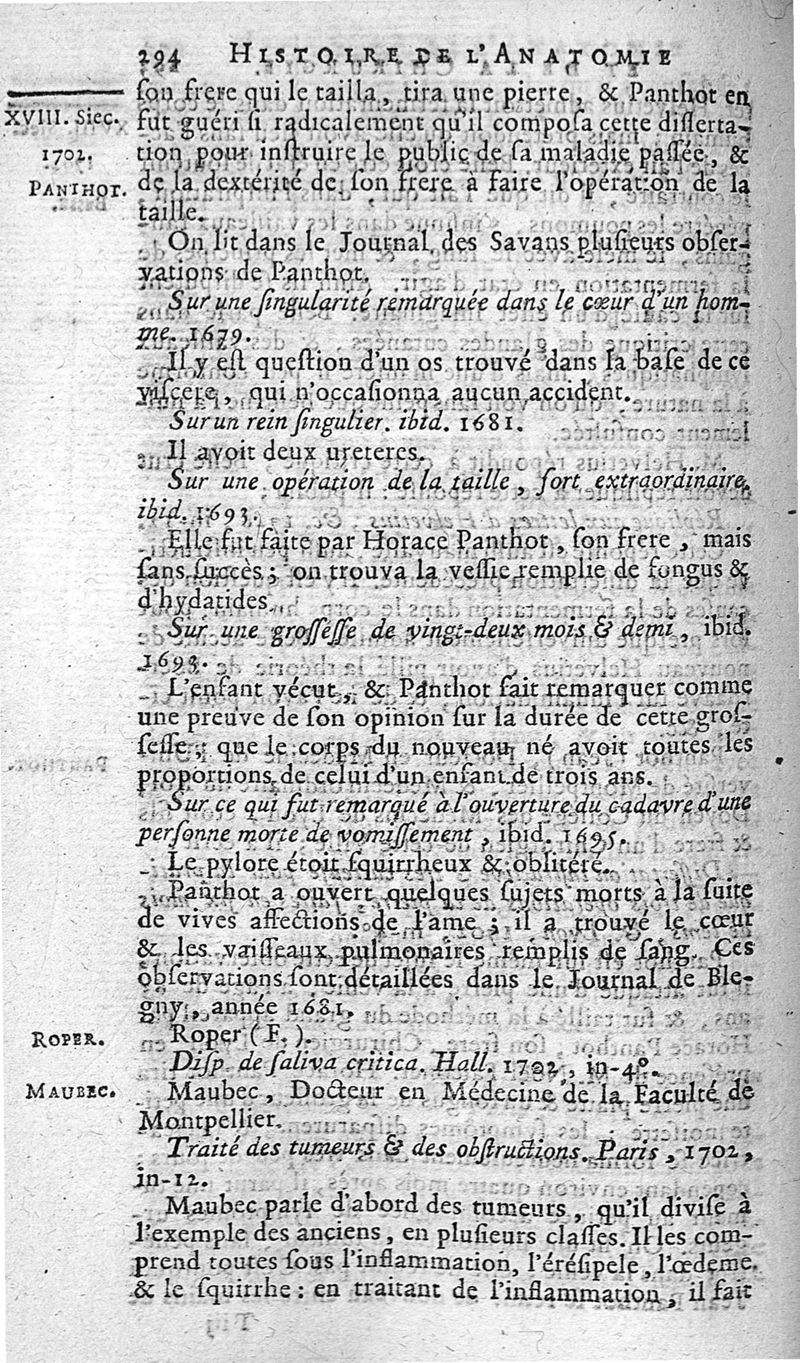 294 HISTOIRE DE L'ANATOMIE
ſon frere qui le tailla, tira une pierre, & Panthot en
XVIII. Siec.
fut guéri ſi radicalement qu'il compoſa cette diſſerta-
1702.
tion pour inſtruire le public de ſa maladie paſſée, &
PANTHOT.
de la dextérité de ſon frere à faire l'opération de la
taille.
On lit dans le Journal des Savans pluſieurs obſer-
vations de Panthot.
Sur une ſingularité remarquée dans le cœur d'un hom-
me. 1679.
Il y eſt queſtion d'un os trouvé dans la baſe de ce
viſcere, qui n'occaſionna aucun accident.
Sur un rein ſingulier. ibid. 1681.
Il avoit deux ureteres.
Sur une opération de la taille, fort extraordinaire,
ibid. 1693.
Elle fut faite par Horace Panthot, ſon frere, mais
ſans ſuccès; on trouva la veſſie remplie de fongus &
d'hydatides.
Sur une groſſeſſe de vingt-deux mois & demi, ibid.
1693.
L'enfant vécut, & Panthot fait remarquer comme
une preuve de ſon opinion ſur la durée de cette groſ-
ſeſſe, que le corps du nouveau né avoit toutes les
proportions de celui d'un enfant de trois ans.
Sur ce qui fut remarqué à l'ouverture du cadavre d'une
perſonne morte de vomiſſement, ibid. 1695.
Le pylore étoit ſquirrheux & oblitéré.
Panthot a ouvert quelques ſujets morts à la ſuite
de vives affections de l'ame; il a trouvé le cœur
& les vaiſſeaux pulmonaires remplis de ſang. Ces
obſervations ſont détaillées dans le Journal de Ble-
gny, année 1681.
ROPER.
Roper (F.).
Diſp. de ſaliva critica. Hall. 1702, in-4°.
MAUBEC.
Maubec, Docteur en Médecine de la Faculté de
Montpellier.
Traité des tumeurs & des obſtructions. Paris, 1702,
in-12.
Maubec parle d'abord des tumeurs, qu'il diviſe à
l'exemple des anciens, en pluſieurs claſſes. Il les com-
prend toutes ſous l'inflammation, l'éréſipele, l'œdeme
& le ſquirrhe: en traitant de l'inflammation, il fait